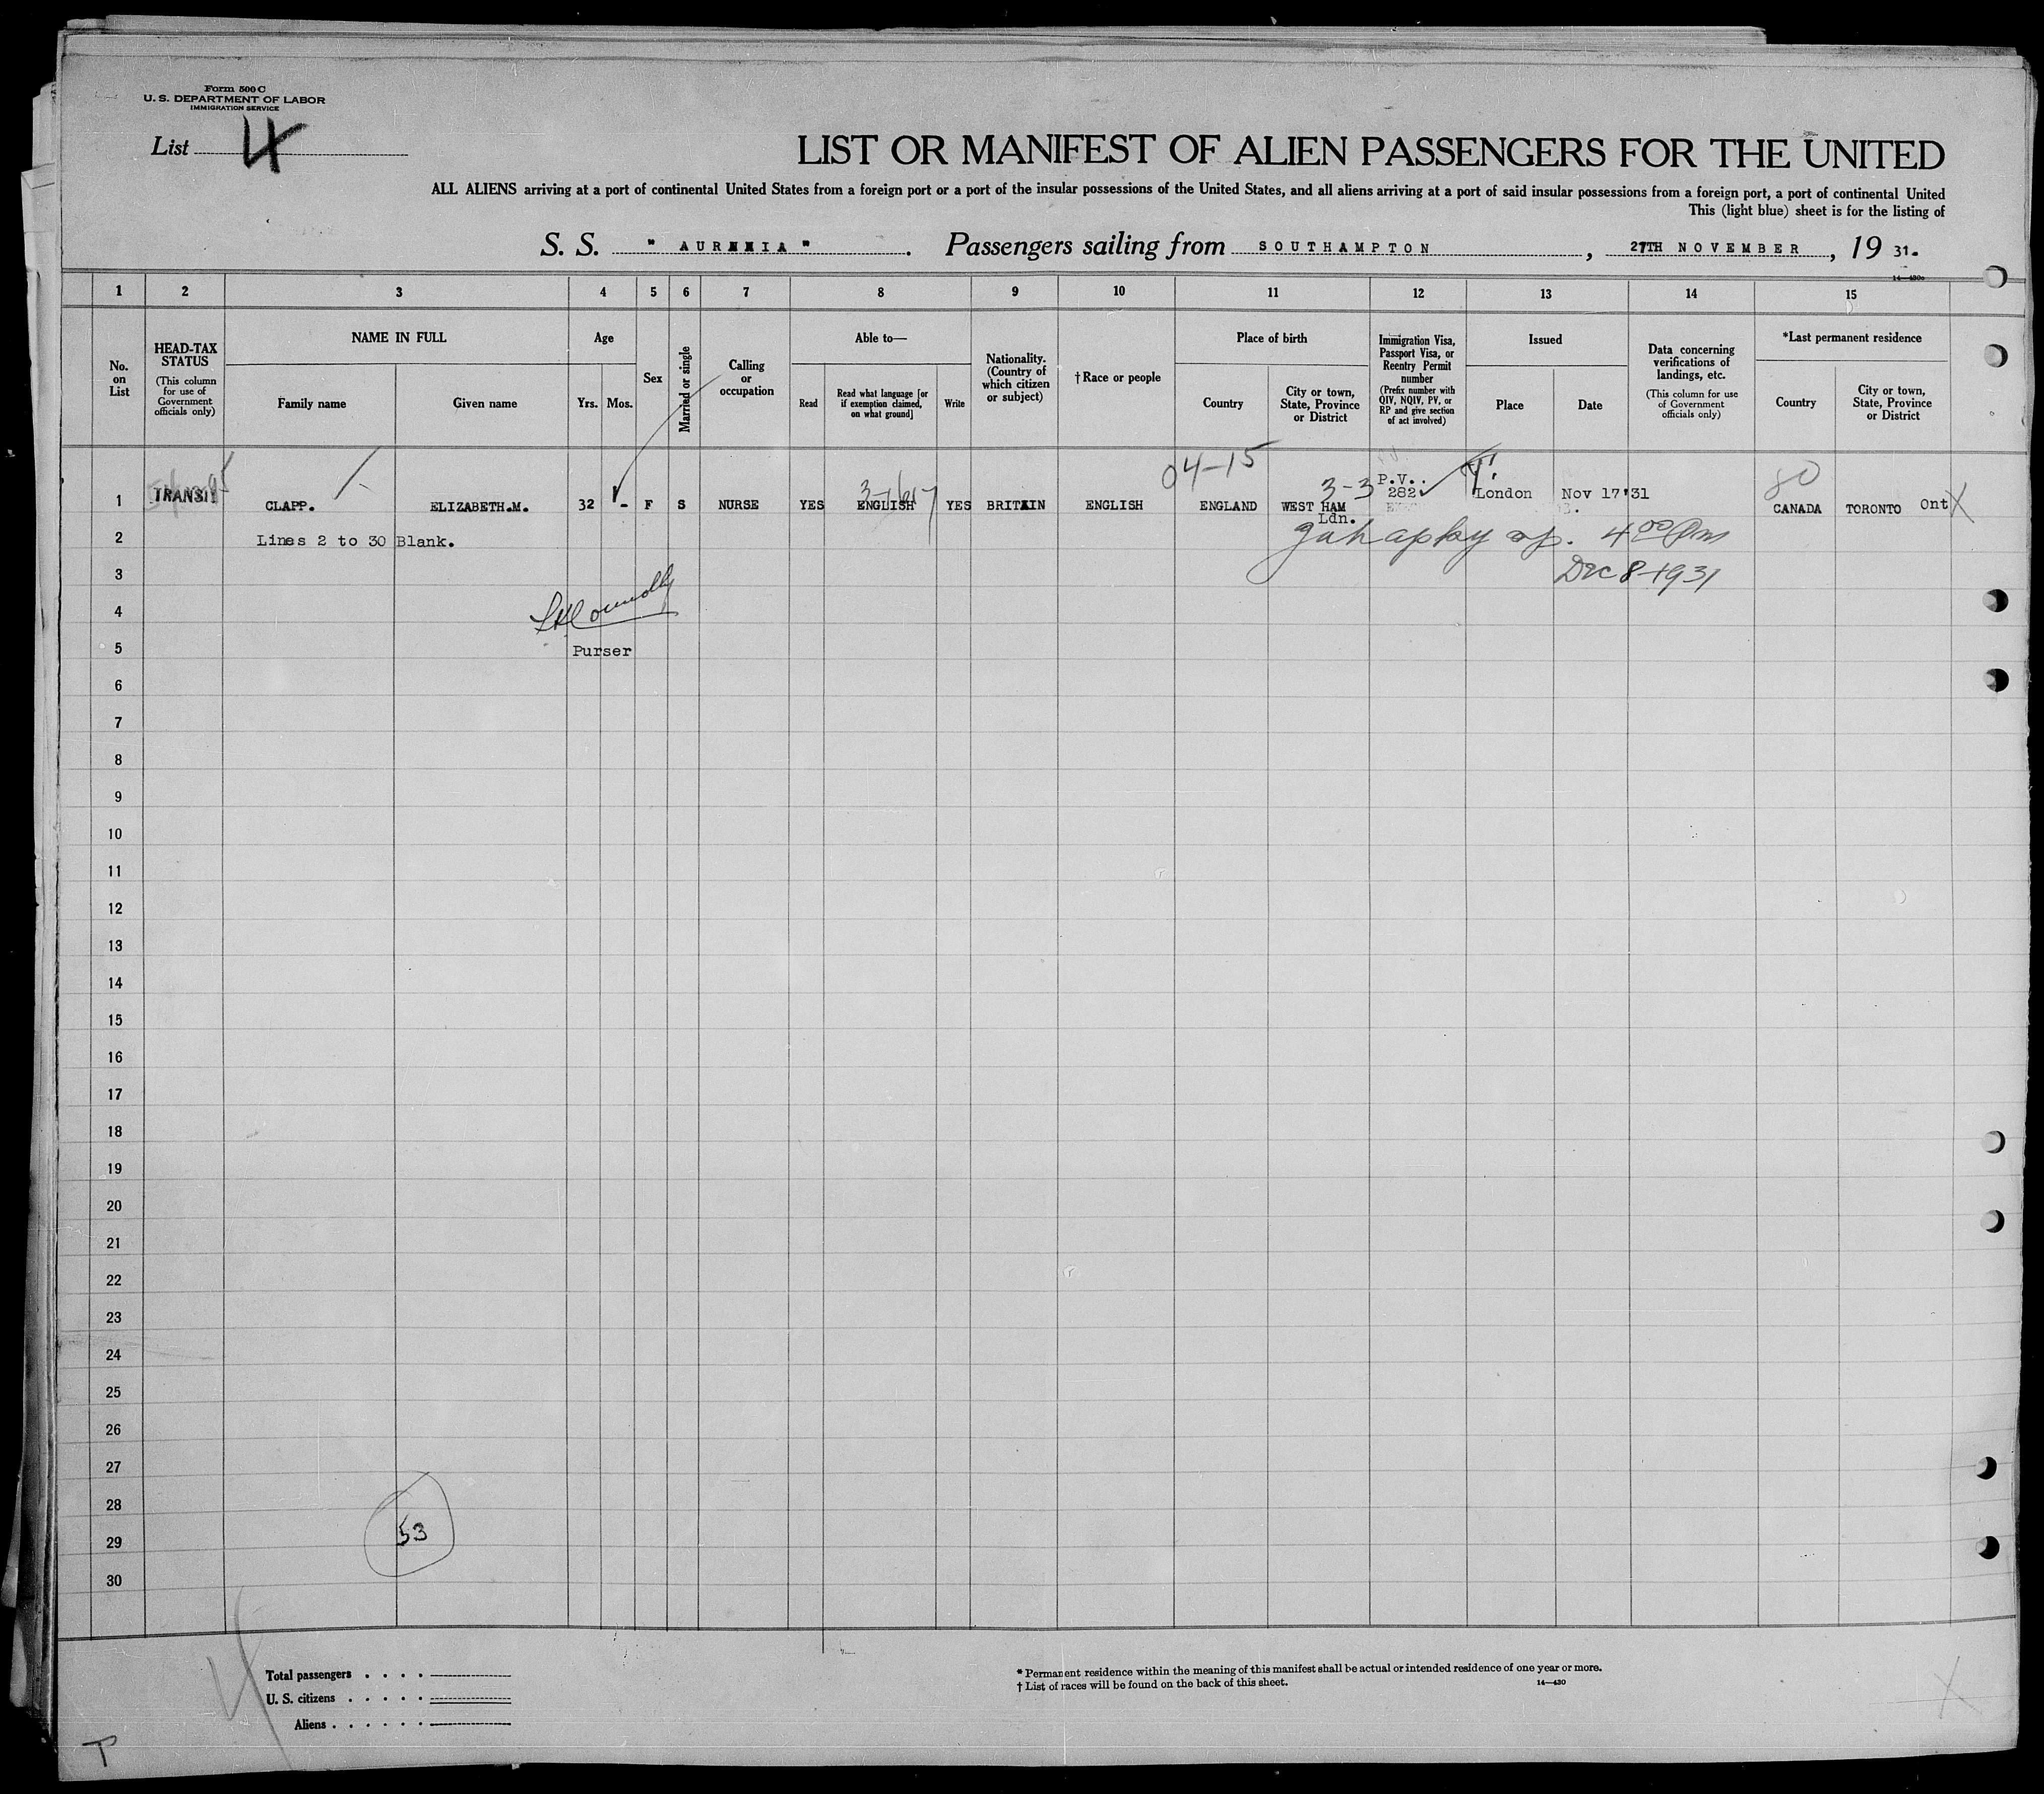 Form 500 C
U. S. DEPARTMENT OF LABOR
IMMIGRATION SERVICE
List 4
LIST OR MANIFEST OF ALIEN PASSENGERS FOR THE UNITED
ALL ALIENS arriving at a port of continental United States from a foreign port or a port of the insular possessions of the United States, and all aliens arriving at a port of said insular possessions from a foreign port, a port of continental United
This (light blue) sheet is for the listing of
S. S. " AURANIA " . Passengers sailing from SOUTHAMPTON , 27TH NOVEMBER , 19 31.
14—430a
1 2 3 4 5 6 7 8 9 10 11 12 13 14 15
No. on List
HEAD-TAX STATUS
(This column for use of Government officials only)
NAME IN FULL
Family name
Given name
Age
Yrs. Mos.
Sex
Married or single
Calling or occupation
Able to—
Read
Read what language [or if exemption claimed, on what ground]
Write
Nationality. (Country of which citizen or subject)
† Race or people
Place of birth
Country
City or town, State, Province or District
Immigration Visa, Passport Visa, or Reentry Permit number
(Prefix number with QIV, NQIV, PV, or RP and give section of act involved)
Issued
Place
Date
Data concerning verifications of landings, etc.
(This column for use of Government officials only)
*Last permanent residence
Country
City or town, State, Province or District
04-15
3-3
80
1 TRANSIT CLAPP. ELIZABETH.M. 32 - F S NURSE YES ENGLISH YES BRITAIN ENGLISH ENGLAND WEST HAM Ldn. P.V.. 282 London Nov 17'31 CANADA TORONTO Ont X
2 Lines 2 to 30 Blank.
4 00 Pm
3
Dec 8-1931
4
5
Purser
6
7
8
9
10
11
12
13
14
15
16
17
18
19
20
21
22
23
24
25
26
27
28
29
53
30
Total passengers . . . .
U. S. citizens . . . . .
Aliens . . . . . .
* Permanent residence within the meaning of this manifest shall be actual or intended residence of one year or more.
† List of races will be found on the back of this sheet.
14—430
X
T